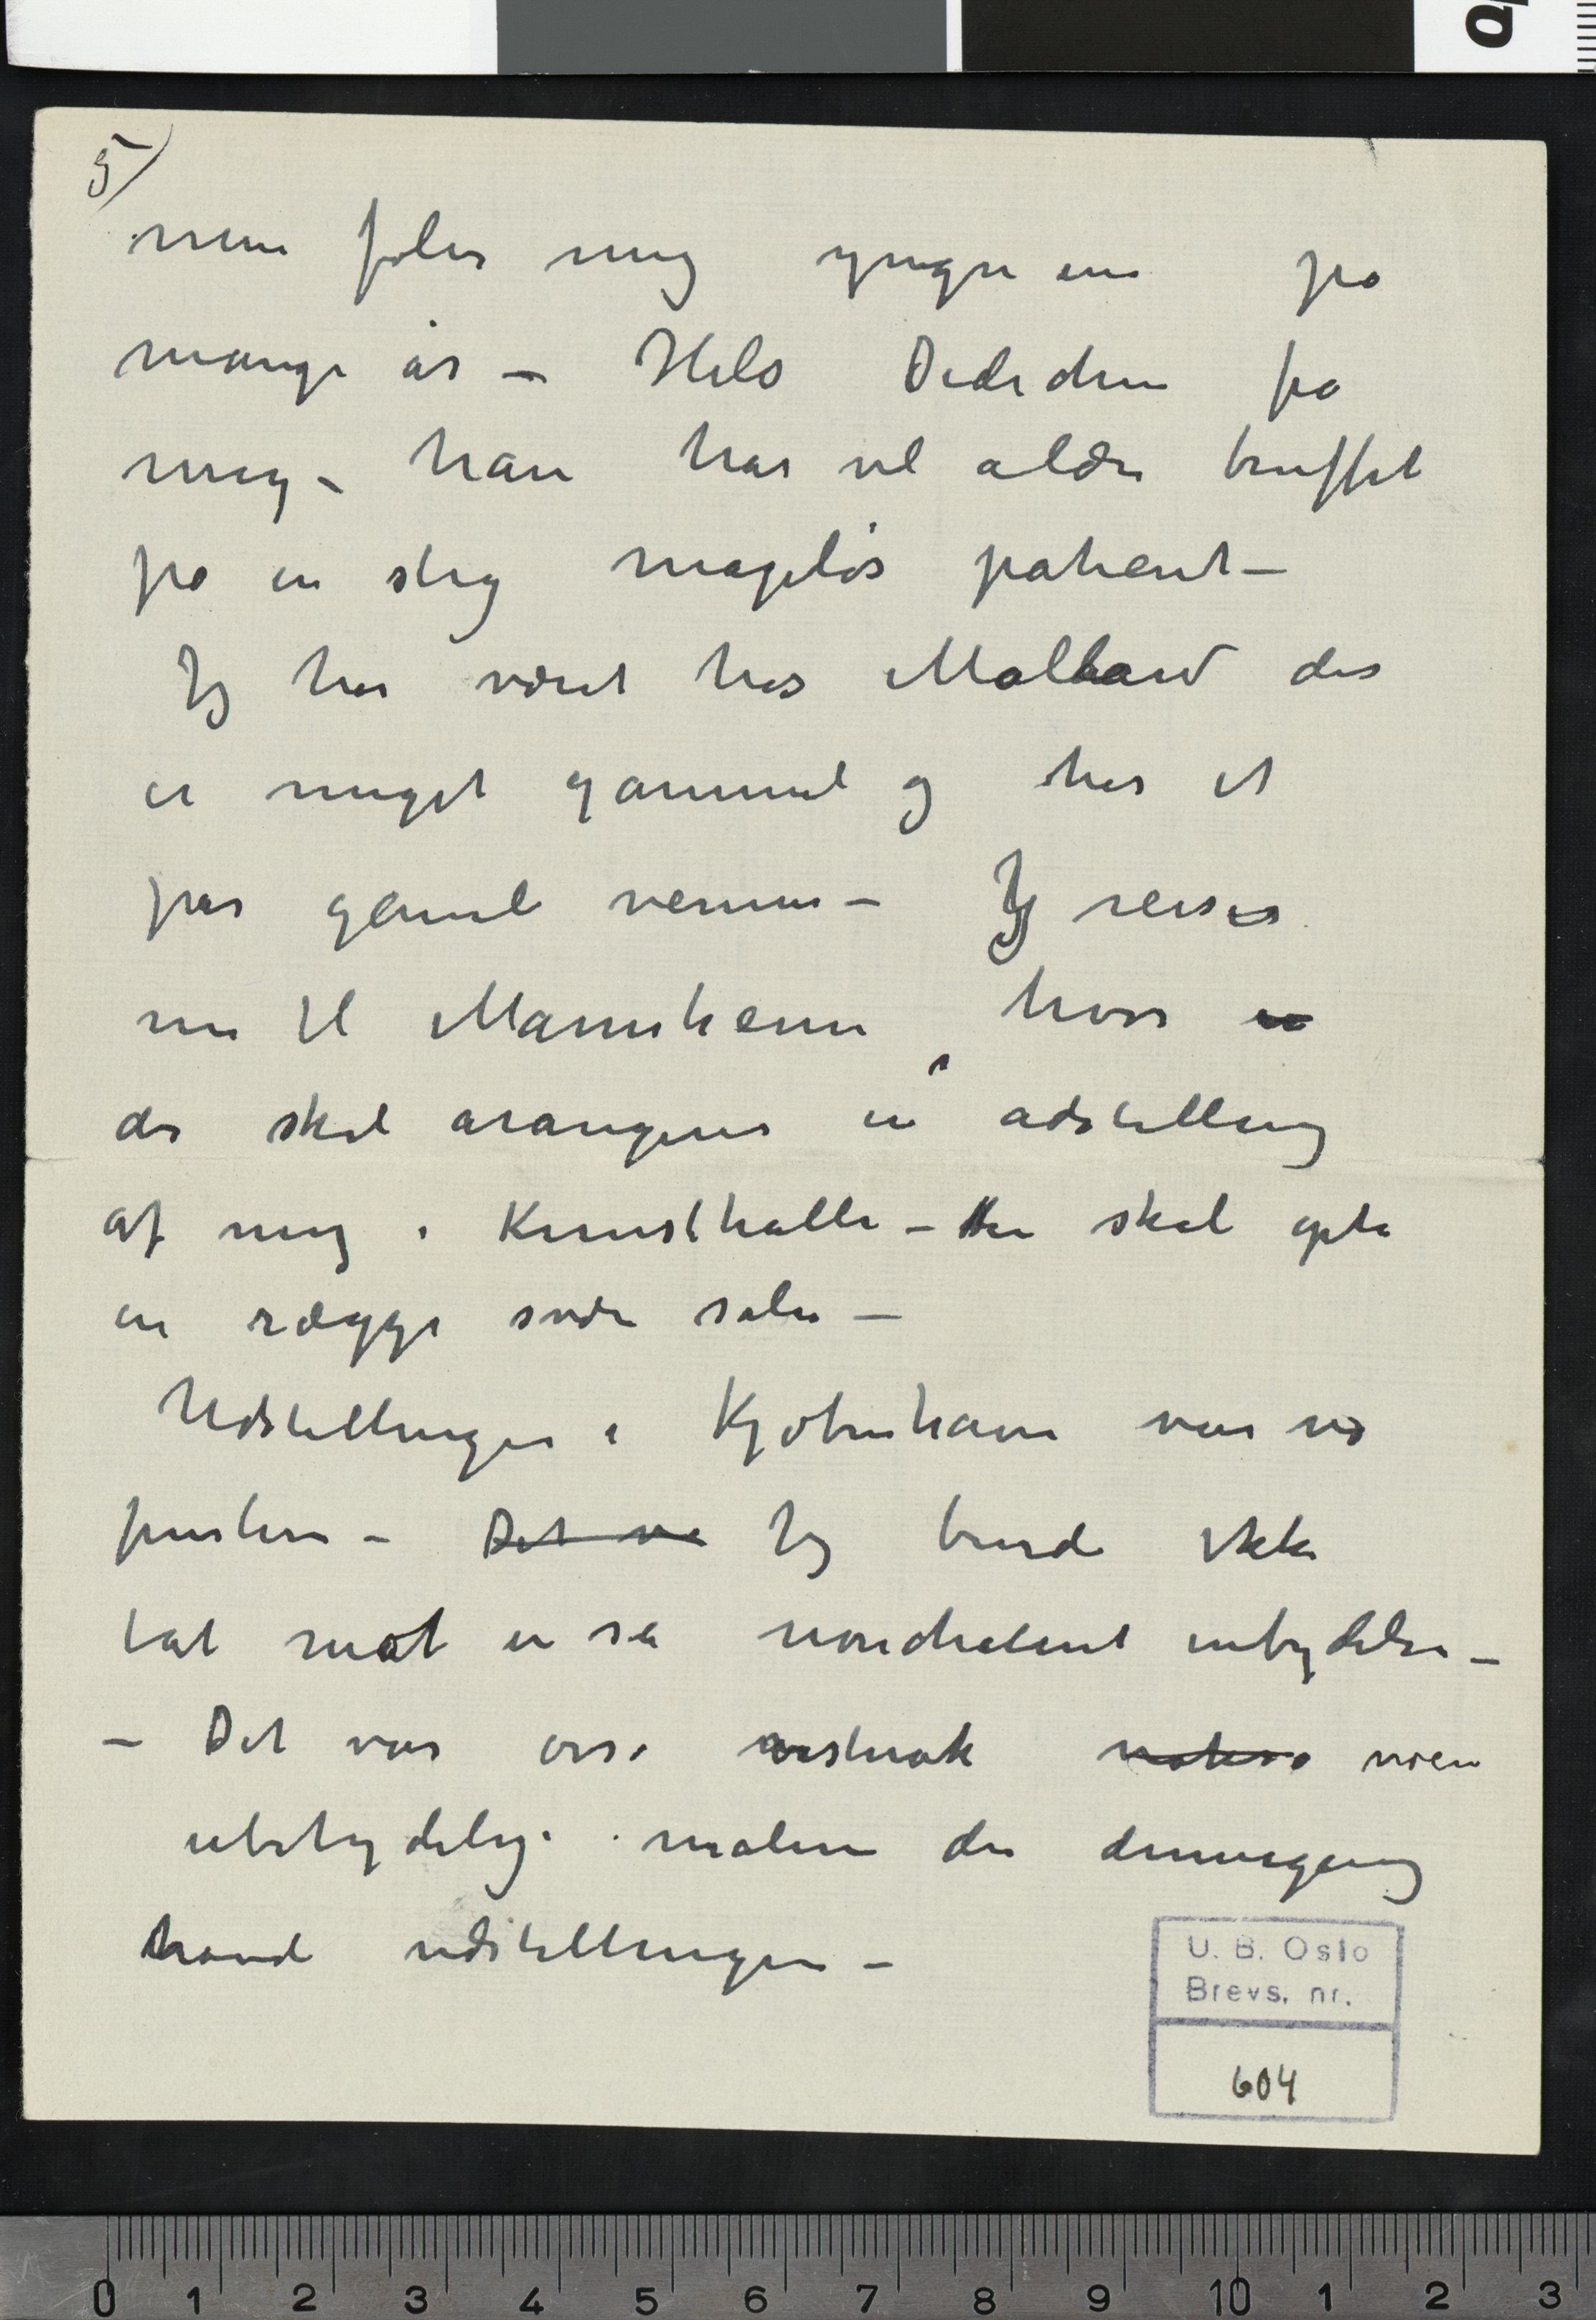 5)
men føler mig yngre en på
mange år – Hils Didichen fra
mig – han har vel aldri truffet
på en slig mageløs patient –
Jeg har været hos Mollard der
er meget gammel og har et
par gamle venner – Jeg reiser
nu til Mannheim hvor en
der skal arangeres en udstilling
af mig i Kunsthalle – den skal opta
en række svære saler –
Udstillingen i Kjøbenhavn var no
fusleri – Det va Jeg burde ikke
tat mot en så nonchelent inbydelse –
– Det var osså noen
ubetydelige malere der dennegang
havde udstillingen –
U. B. Oslo
Brevs. nr.
604
0 1 2 3 4 5 6 7 8 9 10 1 2 3